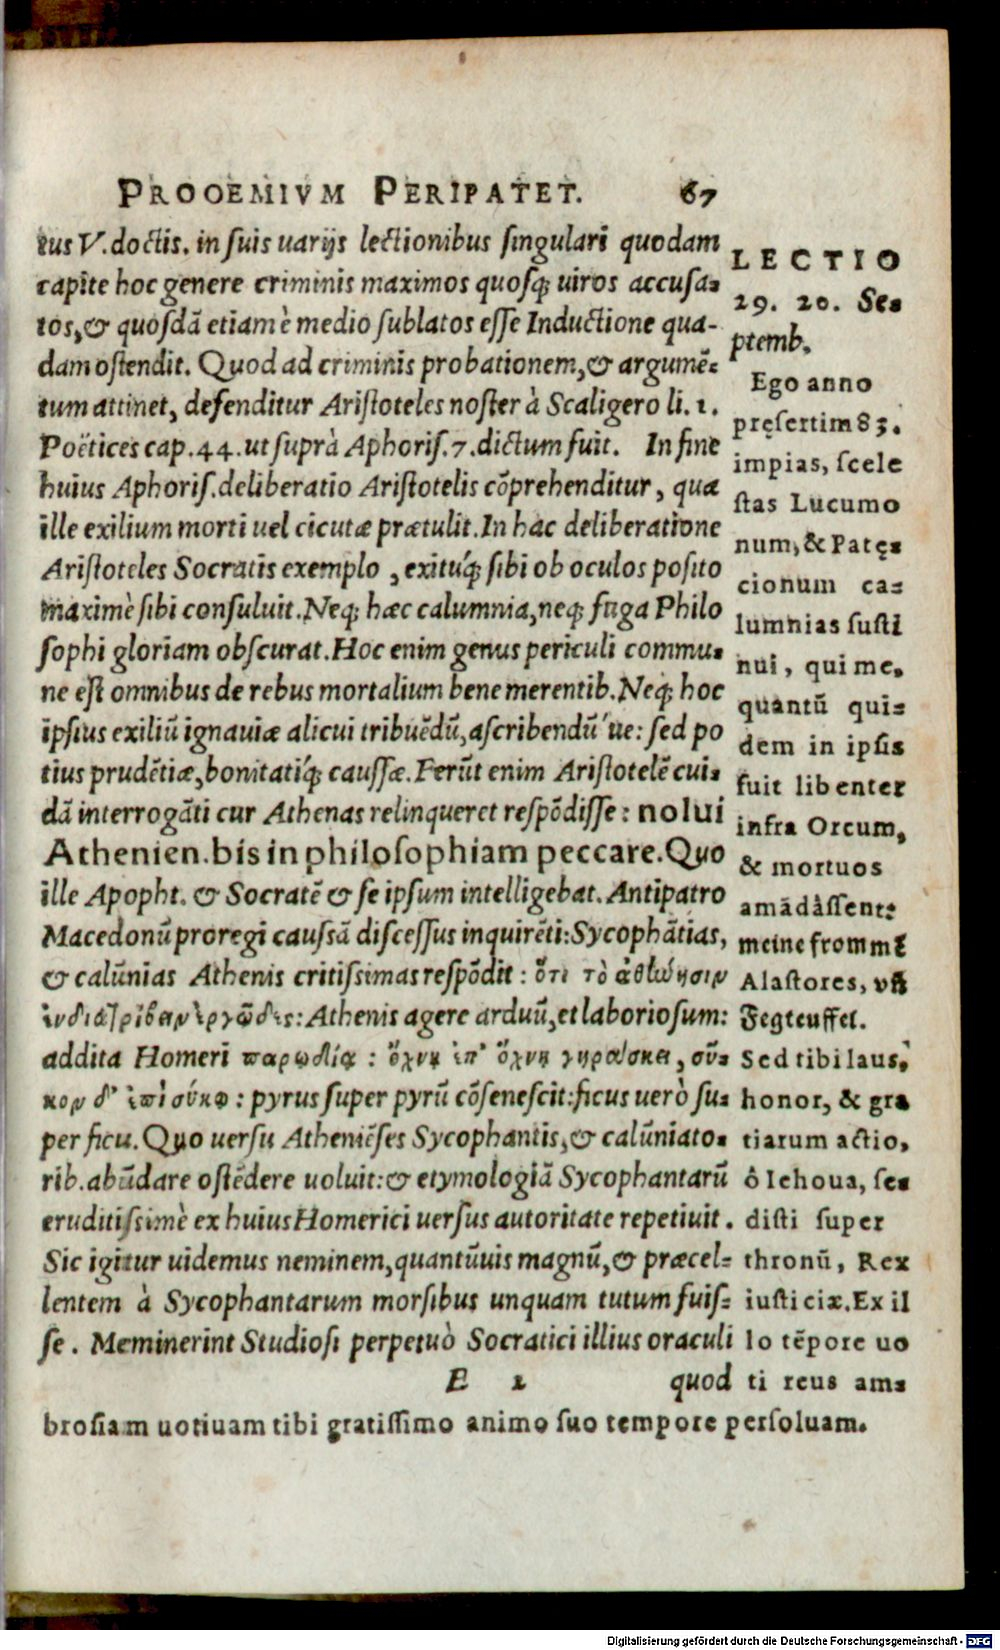 PROOEMIVM PERIPATET. 67
tus V. doctis. in suis uarijs lectionibus singulari quodam
capite hoc genere criminis maximos quosq; uiros accusa-
tos, & quosdã etiam è medio sublatos esse Inductione qua-
dam ostendit. Quod ad criminis probationem, & argumẽ-
tum attinet, defenditur Aristoteles noster à Scaligero li. 1.
Poëtices cap. 44. ut suprà Aphoris. 7. dictum fuit. In fine
huius Aphoris. deliberatio Aristotelis cõprehenditur, qua
ille exilium morti uel cicutæ prætulit. In hac deliberatione
Aristoteles Socratis exemplo, exitúq; sibi ob oculos posito
maximè sibi consuluit. Neq; hæc calumnia, neq; fuga Philo
sophi gloriam obscurat. Hoc enim genus periculi commu-
ne est omnibus de rebus mortalium bene merentib. Neq; hoc
ipsius exiliũ ignauiæ alicui tribuẽdũ, ascribendũ´ue: sed po
tius prudẽtiæ, bonitatíq; caussæ. Ferũt enim Aristotelẽ cui-
dã interrogãti cur Athenas relinqueret respõdisse: nolui
Athenien. bis in philosophiam peccare. Quo
ille Apopht. & Socratẽ & se ipsum intelligebat. Antipatro
Macedonũ proregi caussã discessus inquirẽti: Sycophãtias,
& calũnias Athenis critissimas respõdit: ὅτι τὸ ἀθήνησιν
ἐνδιατρίβειν ἐργῶδες: Athenis agere arduũ, et laboriosum:
addita Homeri παρῳδίᾳ: ὄχνη ἐπ' ὄχνῃ γηράσκει, σῦ-
κον δ' ἐπὶ σύκῳ: pyrus super pyrũ cõsenescit: ficus uerò su-
per ficu. Quo uersu Atheniẽses Sycophantis, & calũniato-
rib. abũdare ostẽdere uoluit: & etymologiã Sycophantarũ
eruditissimè ex huius Homerici uersus autoritate repetiuit.
Sic igitur uidemus neminem, quantũuis magnũ, & præcel-
lentem à Sycophantarum morsibus unquam tutum fuis-
se. Meminerint Studiosi perpetuò Socratici illius oraculi
E 2 quod
LECTIO
29. 20. Se-
ptemb.
Ego anno
pręsertim 83.
impias, scele
stas Lucumo
num, & Patę-
cionum ca-
lumnias susti
nui, qui me,
quantũ qui-
dem in ipsis
fuit libenter
infra Orcum,
& mortuos
amãdàssent:
meine fromme
Alastores, vñ
Fegteuffel.
Sed tibi laus,
honor, & gra
tiarum actio,
ô Iehoua, se-
disti super
thronũ, Rex
iusticiæ. Ex il
lo tẽpore uo
ti reus am-
brosiam uotiuam tibi gratissimo animo suo tempore persoluam.
Digitalisierung gefördert durch die Deutsche Forschungsgemeinschaft - DFG